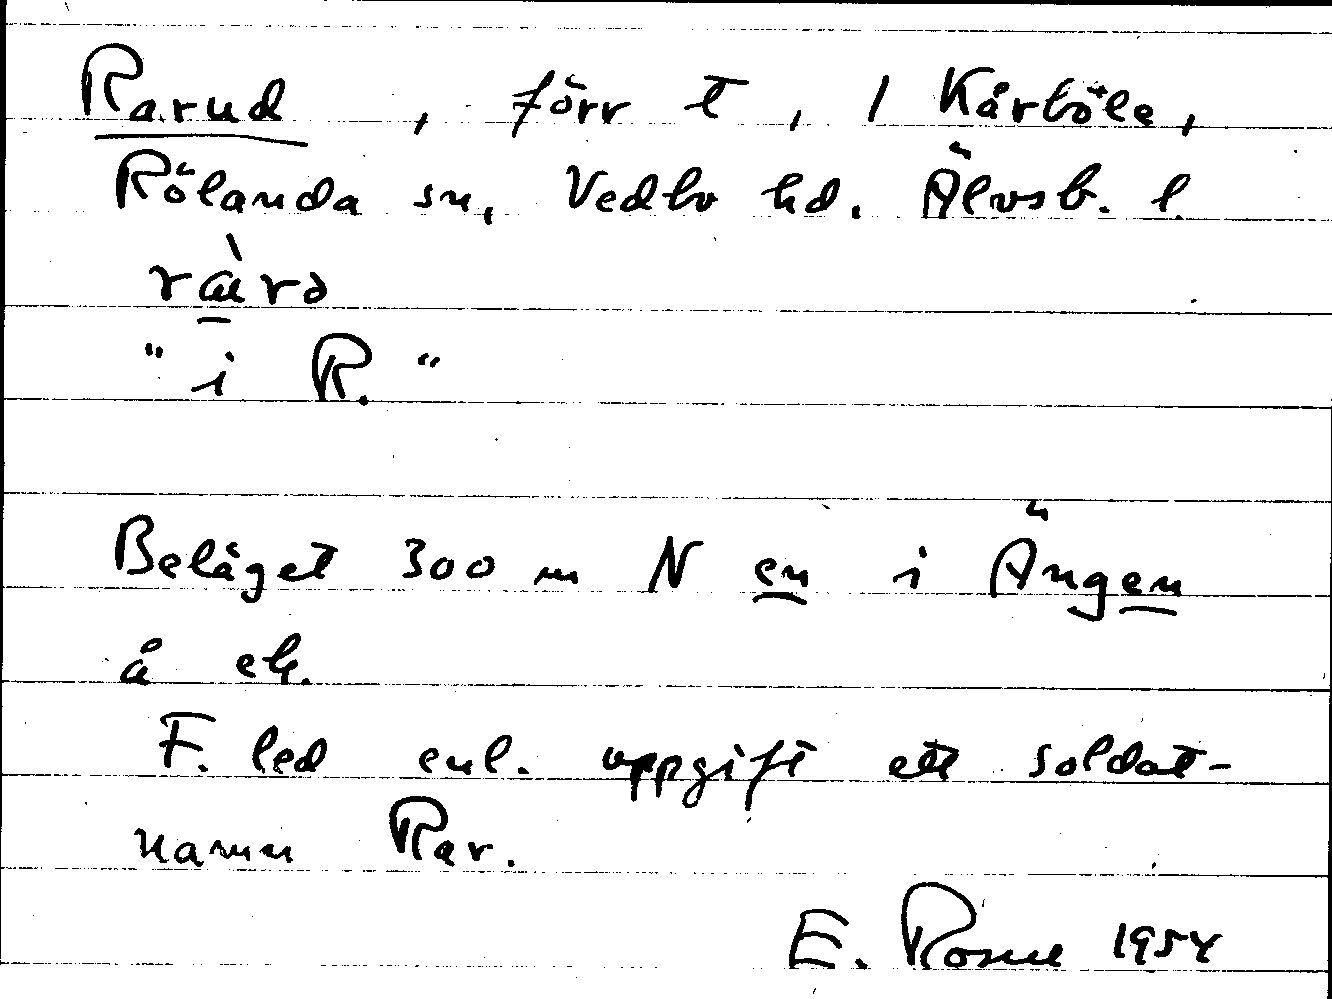 Rarud, förr t, 1 Kårtöle,
Rölanda sn, Vedbo hd. Älvsb. l.
"i R."
Beläget 300 m N en i Ängen
å ek.
F. led enl. uppgift ett soldat-
namn Rar.
E. Rosne 1954